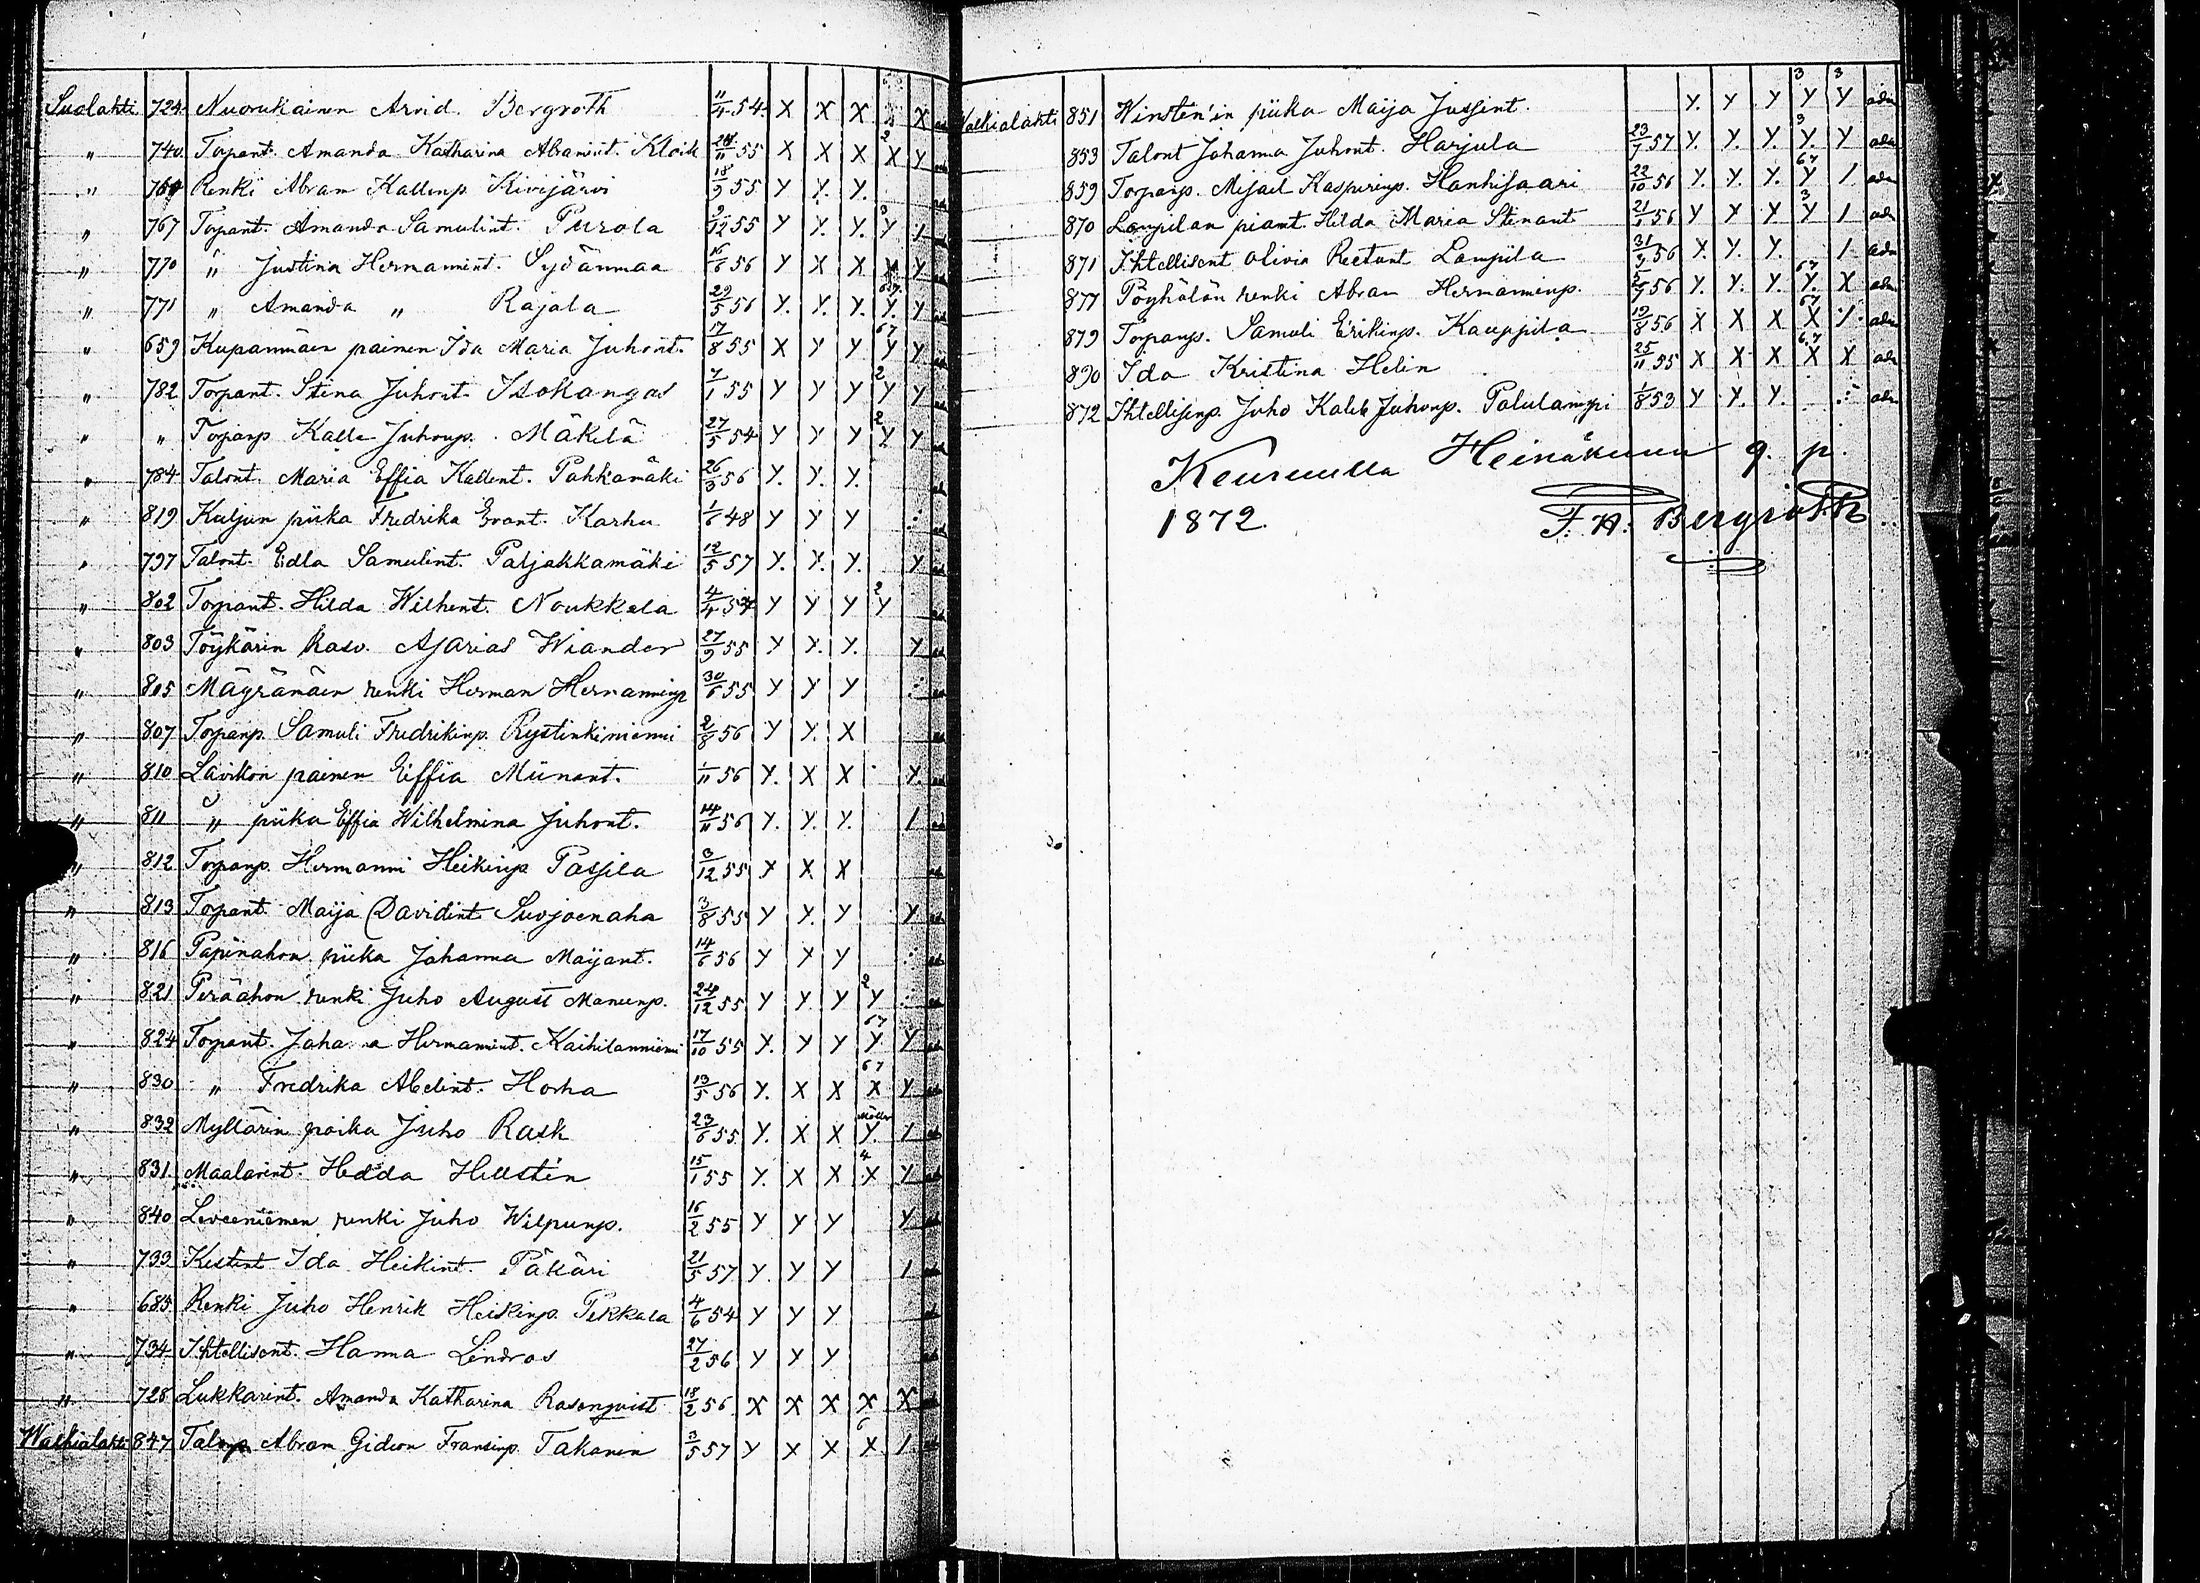 Suolahti 724 Nuorukainen Arvid Bergroth 11/4 54 X X X X
" 740 Torpant. Amanda Katharina Abramint. Kloik 11 55 X X X 2 X Y
" Renki Abram Kallenp. Kivijärvi 18/9 55 Y Y. Y.
" 767 Torpant. Amanda Samulint. Purola 9/12 55 Y Y. Y. 3 Y 1
" 770 " Justina Hermannint. Sydänmaa 16/6 56 Y X X Y
" 771 " Amanda " Rajala 29/5 56 Y. Y. Y. Y. Y
" 659 Kupanmäen painen Ida Maria Juhont. 17/8 55 X Y Y 67 Y Y
" 782 Torpant. Stina Juhont. Isokangas 7/1 55 Y Y Y 2 Y Y
" " Torpanp. Kalle Juhonp. Mäkelä 27/5 54 Y Y Y 2 Y Y
" 784 Talont. Maria Effia Kallent. Pahkamäki 26/3 56 Y. Y. Y.
" 819 Kuljun piika Fredrika Evant. Karhu 1/6 48 Y Y Y
" 797 Talont. Edla Samulint. Paljakkamäki 12/5 57 Y. Y. Y. Y
" 802 Torpant. Hilda Wilhent. Noukkala 4/4 Y Y Y 2 Y
" 803 Töykärin kasv. Asarias Wiander 27/9 55 Y Y. Y. Y
" 805 Mäyränäen renki Herman Hermanninp 30/6 55 Y Y Y
" 807 Torpanp. Samuli Fredrikinp. Rystinkiniemi 2/8 56 Y Y. X
" 810 Lavikon painen Eiffia Miinant. 1/11 56 Y. X X Y.
" 811 " piika Effia Wilhelmina Juhont. 14/11 56 Y. Y. Y. 1
" 812 Torpanp. Hermanni Heikinp. Passila 3/12 55 Y X X
" 813 Torpant. Maija Davidint. Suojoenaha 3/8 55 Y Y. Y Y
" 816 Papinahon piika Johanna Maijant. 14/6 56 Y Y Y
" 821 Peräahon renki Juho August Manunp. 24/12 55 Y Y. Y 2 Y
" 824 Torpant. Joha a Hermannint. Kaihilanniemi 17/10 55 Y. Y Y 67 Y. Y
" 830 " Fredrika Abelint. Horha 13/5 56 Y. X X 67 X Y
" 832 Myllärin poika Juho Rask 23/6 55 Y. X X Y. 1
" 831 Maalarint. Hedda Hellstén 15/1 55 Y. X X 4 X Y
" 840 Leveeniemen renki Juho Wilpunp. 16/2 55 Y Y Y Y
" 733 Kestint Ida Heikint. Päkäri 21/5 57 Y Y Y 1
" 685 Renki Juho Henrik Heikinp. Pekkala 4/6 54 Y Y Y
" 734 Ihtellisent. Hanna Lindros 27/2 56 Y Y Y
" 728 Lukkarint. Amanda Katharina Rosenqvist 18/2 56 X X X X X
Walkialahti 847 Talonp. Abram Gideon Fransinp. Takanen 3/5 57 Y X X 6 X 1
Walkialahti 851 Winstén'in piika Maija Jussint. Y. Y Y 3 Y 3 Y adm
853 Talont Johanna Juhont. Harjula 23/7 57 Y. Y. Y. 3 Y. Y adm
859 Torpanp. Mijail Kasperinp. Hankisaari 22/10 56 Y. Y. Y. 67 Y 1 adm
870 Lampilan piant. Hilda Maria Stinant 21/1 56 Y Y Y 3 Y 1 adm
871 Ihtellisent Olivia Reetant Lampila 31 56 Y. Y. Y. 1 adm
877 Pöyhölän renki Abram Hermanninp. 5/7 56 Y. Y. Y. 67 Y. X adm
879 Torpanp. Samuli Erikinp. Kauppila 19/8 56 X X X 67 X 1 adm
890 Ida Kristina Helin 25/11 55 X X X 67 X X adm
872 Ihtellisenp. Juho Kaleb Juhonp. Palulampi 1/8 53 Y Y. Y. adm
Keuruulla Heinäkuun 9. p.
1872. F. A. Bergroth